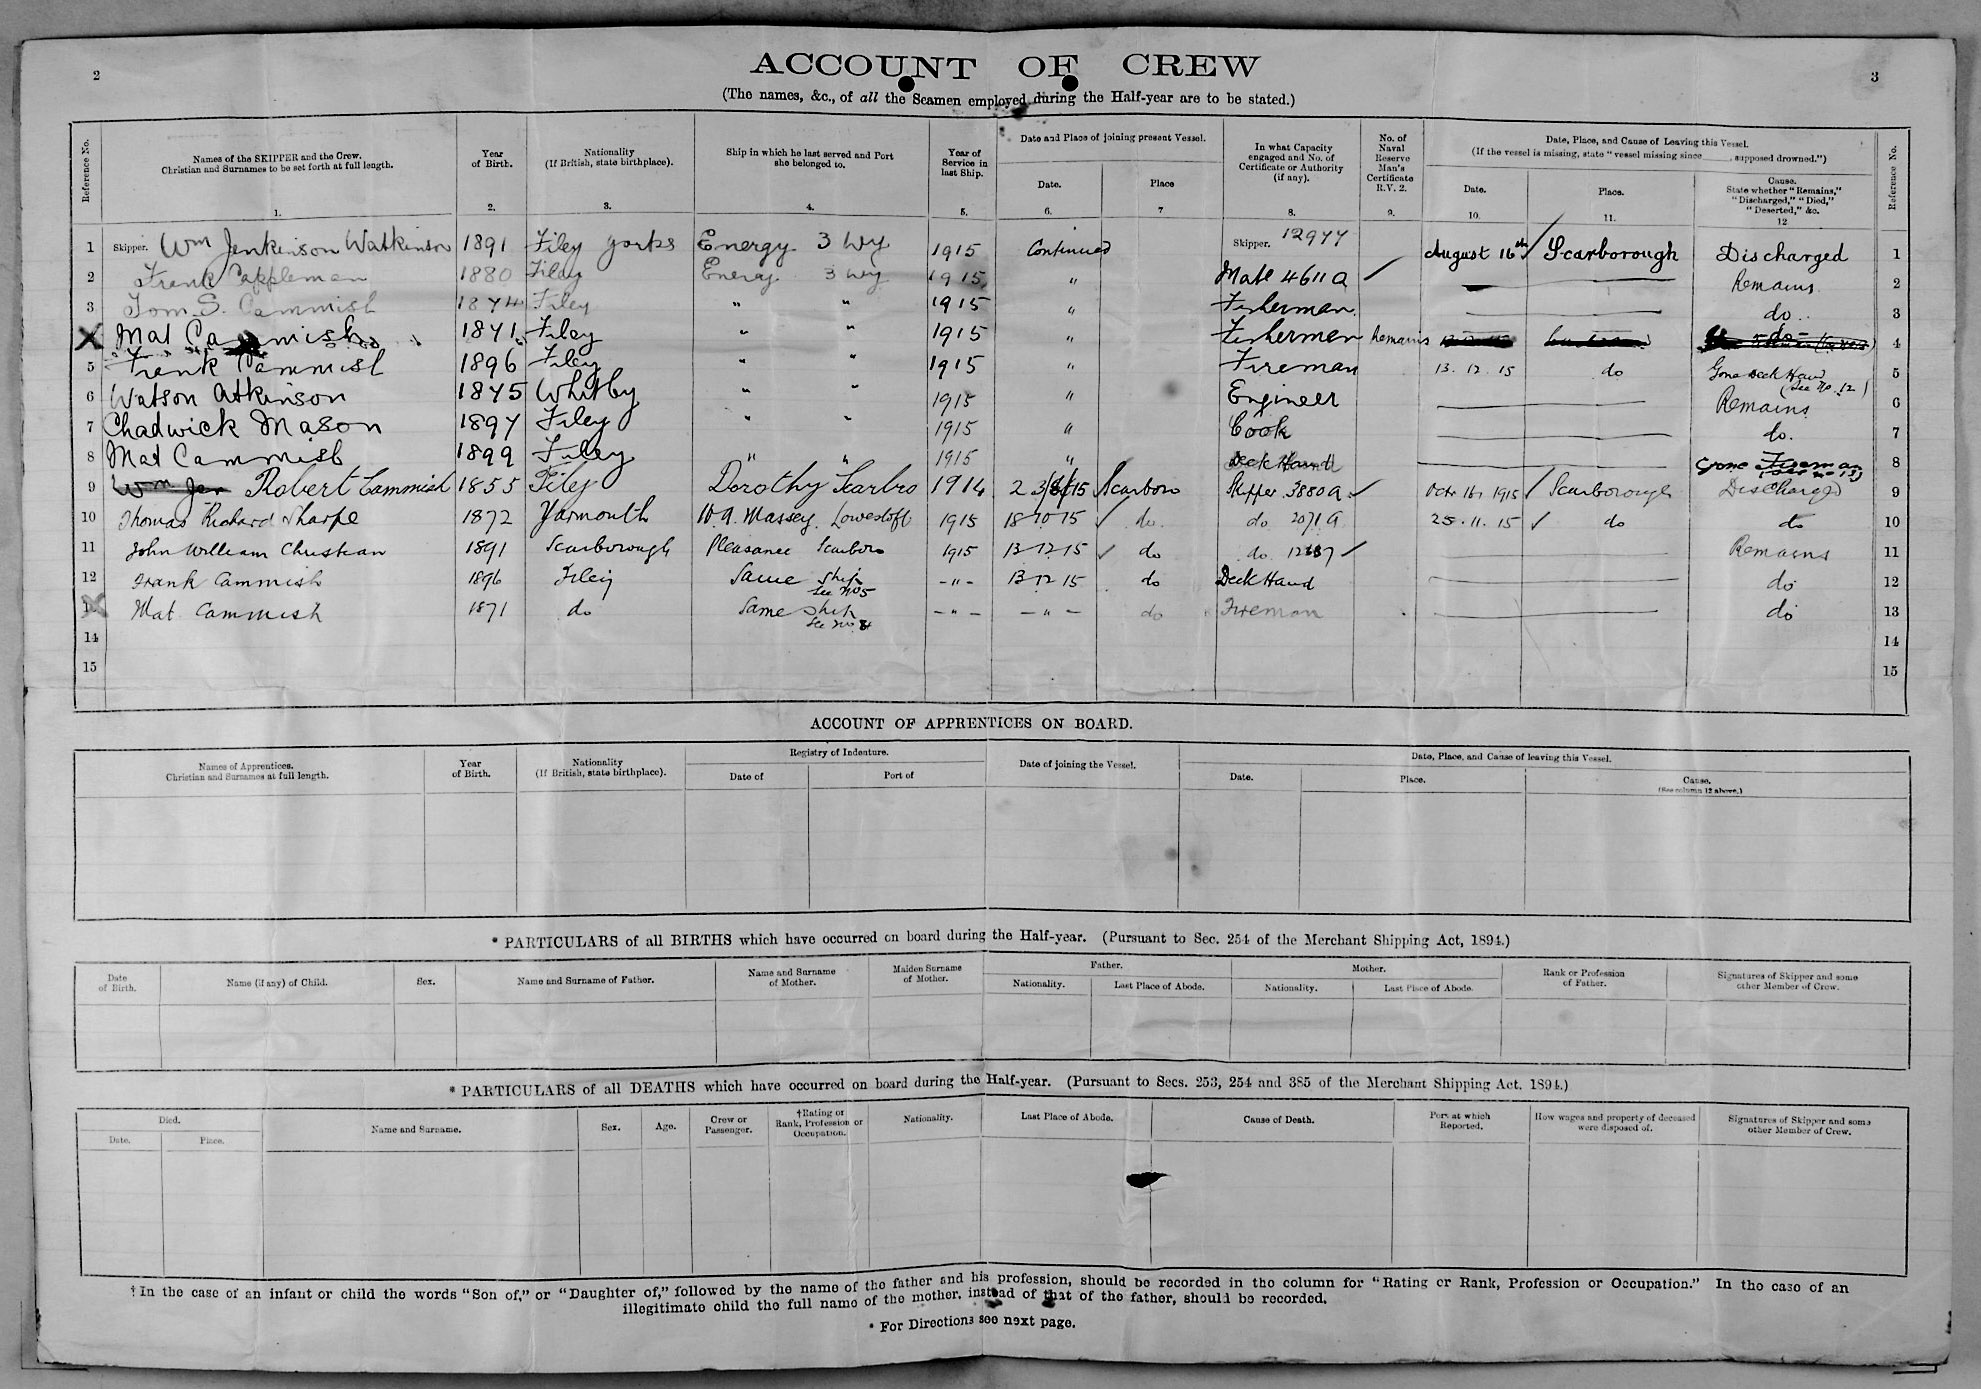 2
ACCOUNT OF CREW
3
(The names, &c., of all the Seamen employed during the Half-year are to be stated.)
Reference No.
Names of the SKIPPER and the Crew.
Christian and Surnames to be set forth at full length.
1.
Year
of Birth.
2.
Nationality
(If British, state birthplace).
3.
Ship in which he last served and Port
she belonged to.
4.
Year of
Service in
last Ship.
5.
Date and Place of joining present Vessel.
Date.
6.
Place
7
In what Capacity
engaged and No. of
Certificate or Authority
(if any).
8.
No. of
Naval
Reserve
Man's
Certificate
R.V. 2.
9.
Date, Place, and Cause of Leaving this Vessel.
(If the vessel is missing, state "vessel missing since ____, supposed drowned.")
Date.
10.
Place.
11.
Cause.
State whether "Remains,"
"Discharged," "Died,"
"Deserted," &c.
12
Reference No.
1 Skipper. Wm Jenkinson Watkinson 1891 Filey Yorks Energy 3 Wy 1915 Continued Skipper. 12977 August 16th Scarborough Discharged 1
2 Frank Cappleman 1880 Filey Energy 3 Wy 1915 " Mate 4611A Remains 2
3 Tom S. Cammish 1874 Filey " " 1915 " Fisherman do. 3
4 Mat Cammish 1871 Filey " " 1915 " Fisherman Remains do 4
5 Frank Cammish 1896 Filey " " 1915 " Fireman 13.12.15 do Gone Deck Hand (See No. 12) 5
6 Watson Atkinson 1875 Whitby " " 1915 " Engineer Remains 6
7 Chadwick Mason 1897 Filey " " 1915 " Cook do. 7
8 Mat Cammish 1899 Filey " " 1915 " Deck Hand Gone Fireman (see no 13) 8
9 Wm Jen Robert Cammish 1855 Filey Dorothy Scarbro 1914 Scarboro Skipper 3880A Octr 16 1915 Scarborough Discharged 9
10 Thomas Richard Sharpe 1872 Yarmouth W.A. Massey Lowestoft 1915 18-10-15 do. do 2071A 25.11.15 do do 10
11 John William Christian 1891 Scarborough Pleasance Scarboro 1915 13-12-15 do do Remains 11
12 Frank Cammish 1896 Filey Same ship see No 5 -"- 13-12-15 do Deck Hand do 12
13 Mat Cammish 1871 do Same ship see no 8 -"- -"- do Fireman do 13
14 14
15 15
ACCOUNT OF APPRENTICES ON BOARD.
Names of Apprentices.
Christian and Surnames at full length.
Year
of Birth.
Nationality
(If British, state birthplace).
Registry of Indenture.
Date of
Port of
Date of joining the Vessel.
Date, Place, and Cause of leaving this Vessel.
Date.
Place.
Cause.
(See column 12 above.)
* PARTICULARS of all BIRTHS which have occurred on board during the Half-year. (Pursuant to Sec. 254 of the Merchant Shipping Act, 1894.)
Date
of Birth.
Name (if any) of Child.
Sex.
Name and Surname of Father.
Name and Surname
of Mother.
Maiden Surname
of Mother.
Father.
Nationality.
Last Place of Abode.
Mother.
Nationality.
Last Place of Abode.
Rank or Profession
of Father.
Signatures of Skipper and some
other Member of Crew.
* PARTICULARS of all DEATHS which have occurred on board during the Half-year. (Pursuant to Secs. 253, 254 and 385 of the Merchant Shipping Act, 1894.)
Died.
Date.
Place.
Name and Surname.
Sex.
Age.
Crew or
Passenger.
†Rating or
Rank, Profession or
Occupation.
Nationality.
Last Place of Abode.
Cause of Death.
Port at which
Reported.
How wages and property of deceased
were disposed of.
Signatures of Skipper and some
other Member of Crew.
†In the case of an infant or child the words "Son of," or "Daughter of," followed by the name of the father and his profession, should be recorded in the column for "Rating or Rank, Profession or Occupation." In the case of an
illegitimate child the full name of the mother, instead of that of the father, should be recorded.
* For Directions see next page.